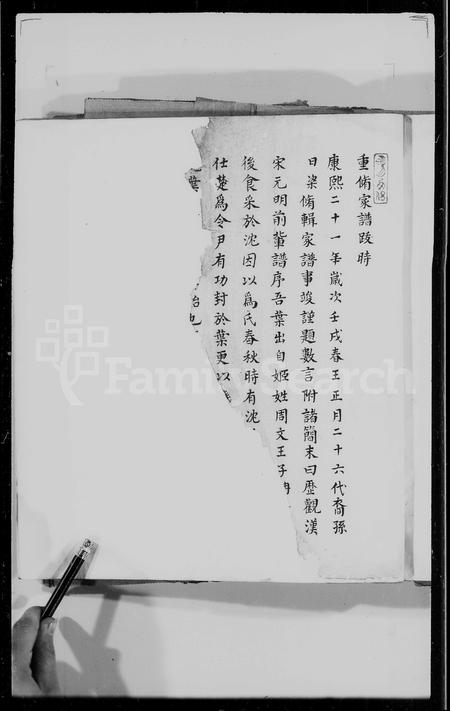 重脩家譜跋時
康熙二十一年歲次壬戌春王正月二十六代裔孫
日桼脩輯家譜事竣謹題數言附諸簡末曰歷觀漢
宋元明前輩譜序吾葉出自姬姓周文王子冉
後食采於沈因以為氏春秋時有沈
仕楚為令尹有功封於葉更以
葉 始也
FamilySearch